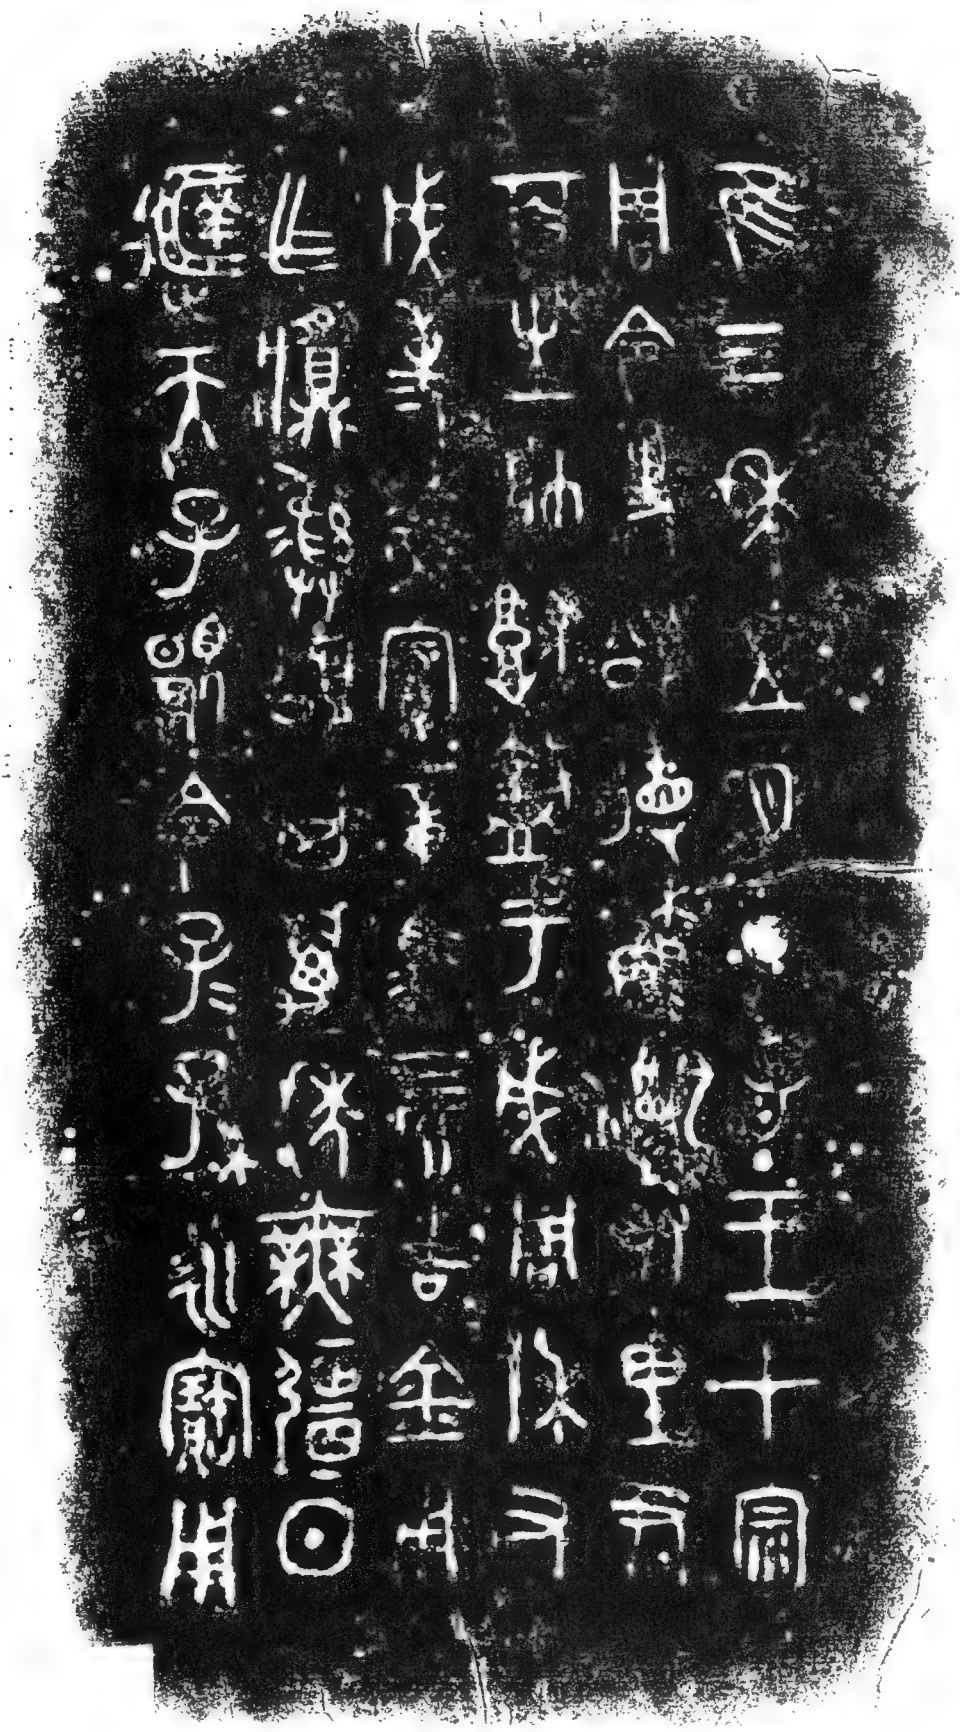 隹三年五月丁子王才宗
周令史頌省蘇𤅊友里君
百生帥堣盩于成周休又
成事蘇賓章馬四匹吉金用
乍䵼彝頌其萬年無疆日
𨒙天子顯令子=孫=永寶用